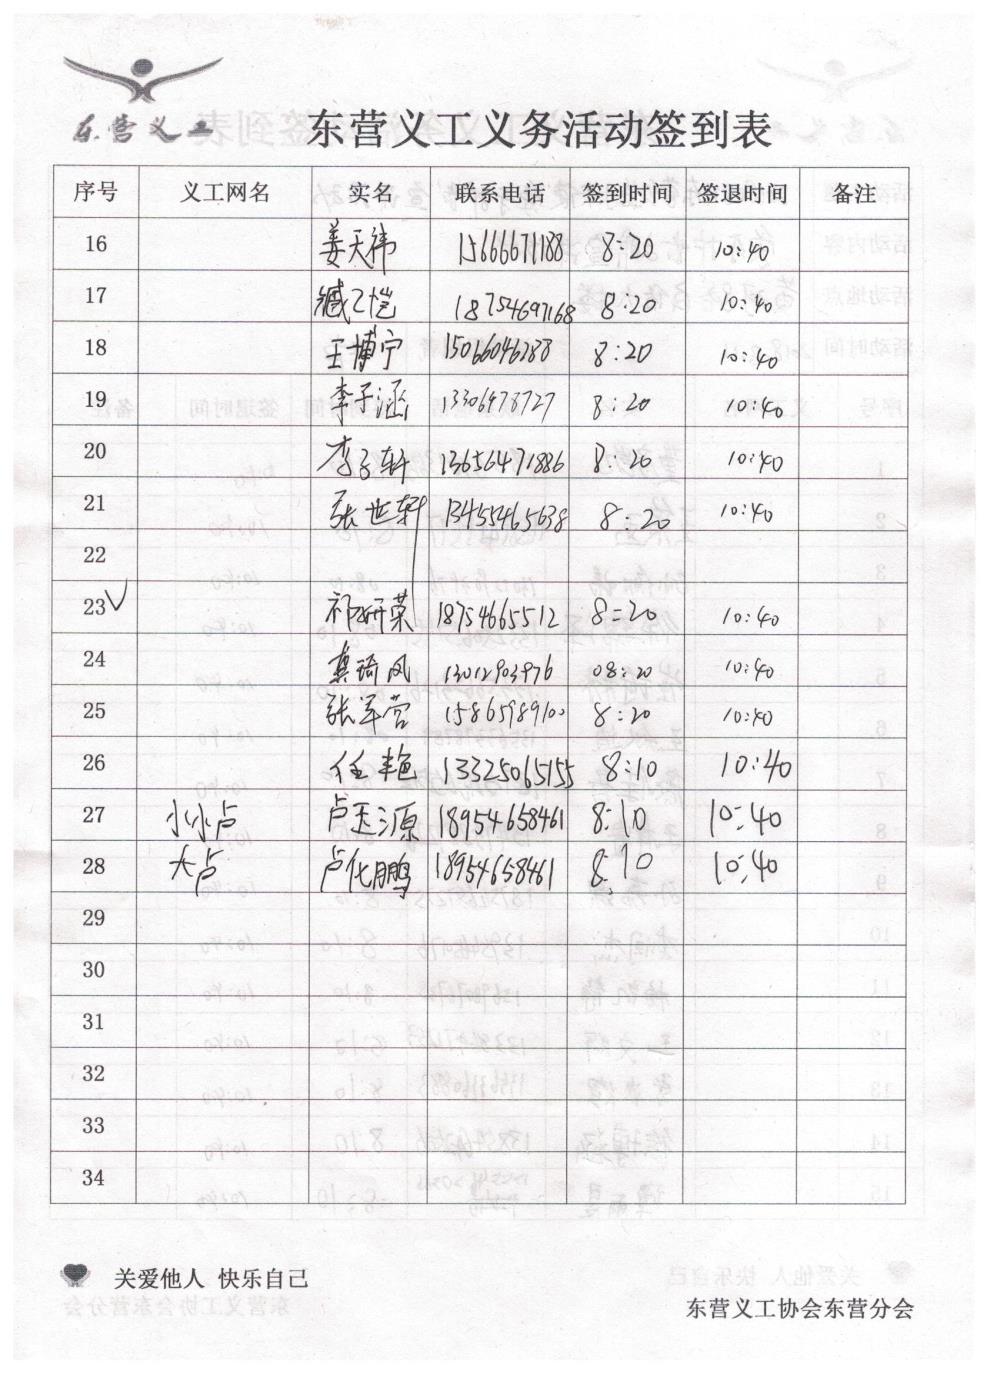 东营义工
东营义工义务活动签到表
序号 义工网名 实名 联系电话 签到时间 签退时间 备注
16 姜天祎 15666671188 8:20 10:40
17 臧乙恺 18754697168 8:20 10:40
18 王博宁 15066046288 8:20 10:40
19 李子涵 13306478727 8:20 10:40
20 李子轩 13656471886 8:20 10:40
21 张世轩 13455465638 8:20 10:40
22
23 祁妍荣 18754665512 8:20 10:40
24 綦琦凤 13012903976 08:20 10:40
25 张军营 15865989100 8:20 10:40
26 任艳 13325065155 8:10 10:40
27 小小卢 卢玉源 18954658461 8:10 10:40
28 大卢 卢化鹏 18954658461 8:10 10:40
29
30
31
32
33
34
关爱他人 快乐自己
东营义工协会东营分会